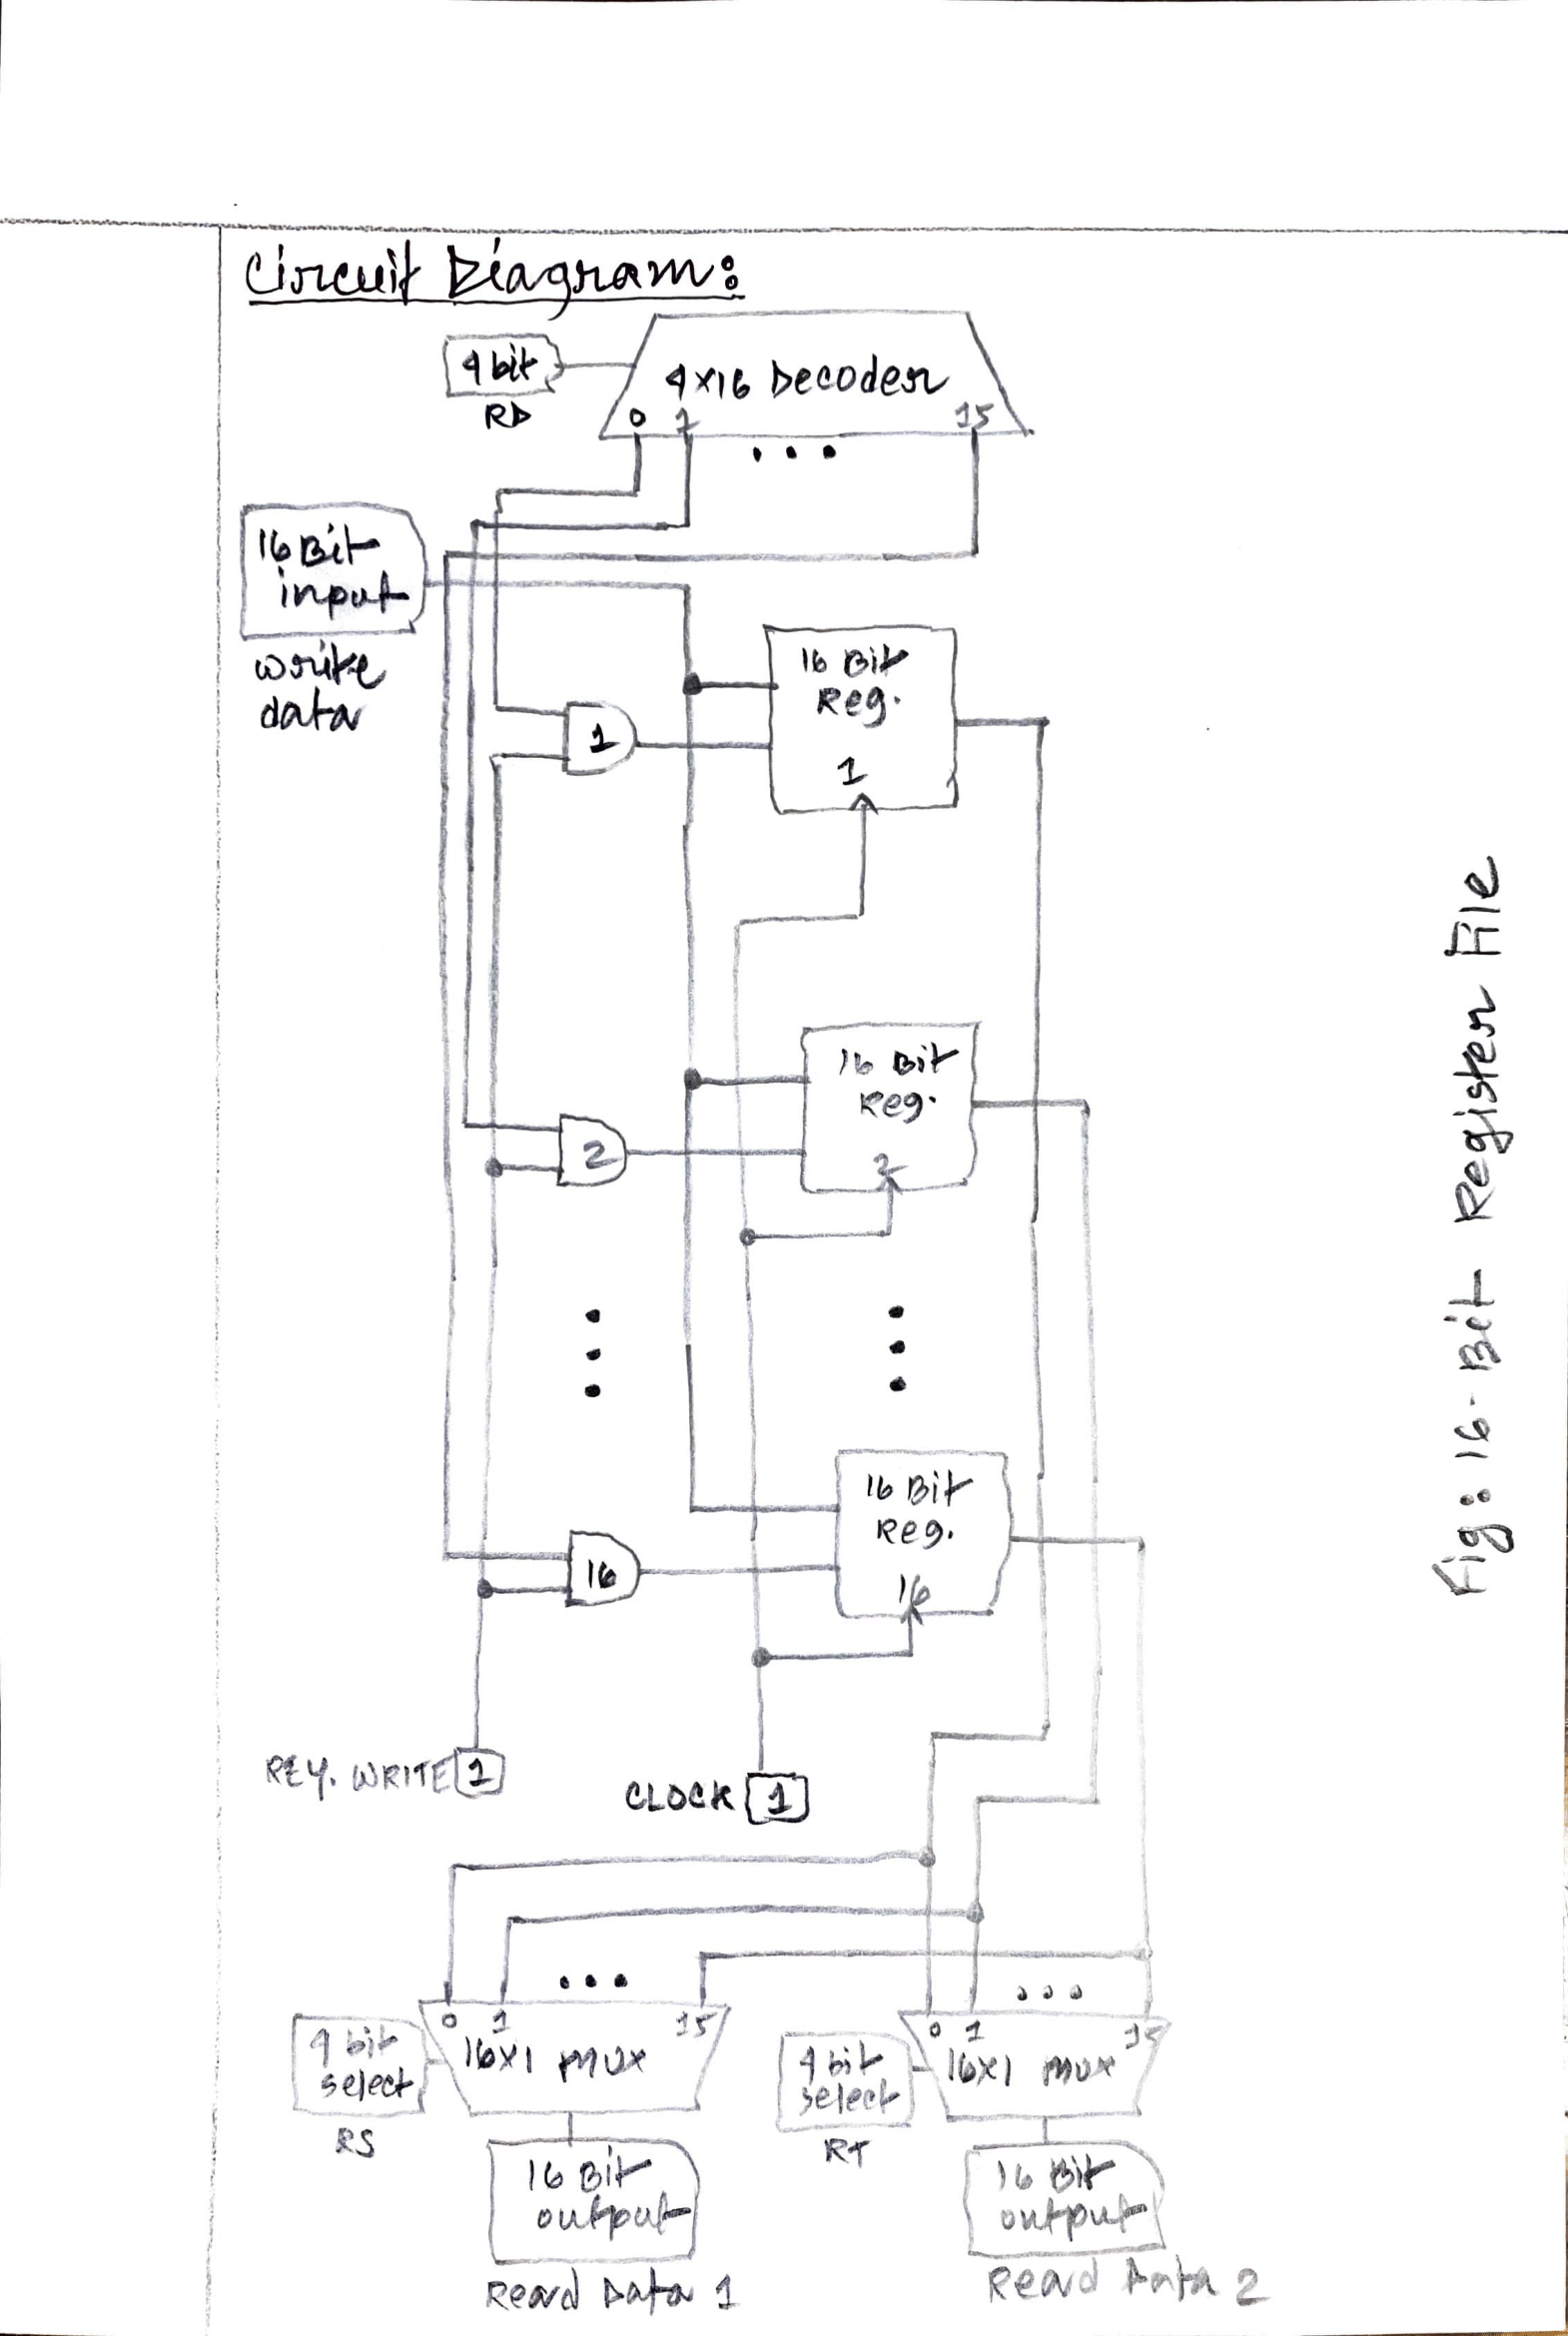 Circuit Diagram:
4 bit
RD
4x16 Decoder
0 1 15
16 Bit
input
write
data
16 Bit
Reg.
1
1
16 Bit
Reg.
2
2
16 Bit
Reg.
16
16
REY. WRITE 1
CLOCK 1
0 1 15
16x1 MUX
4 bit
select
RS
0 1 15
16x1 MUX
4 bit
select
RT
16 Bit
output
Read Data 1
16 Bit
output
Read Data 2
Fig: 16-Bit Register File